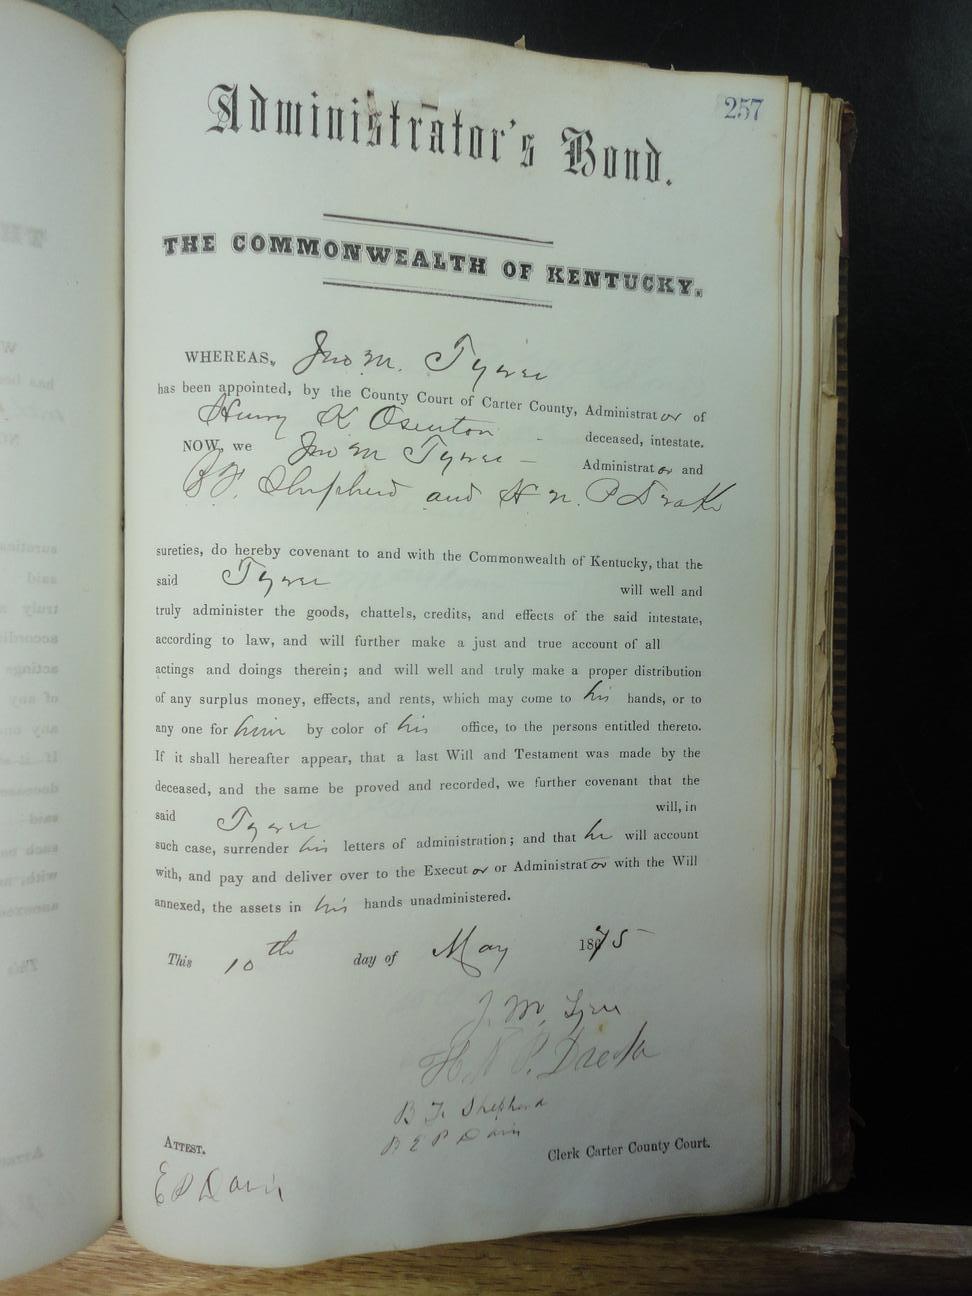 257
Administrator's Bond.
THE COMMONWEALTH OF KENTUCKY.
WHEREAS, Jno M. Tyree
has been appointed, by the County Court of Carter County, Administrator of
Henry K Osenton - deceased, intestate.
NOW, we Jno M Tyree - Administrator and
B F. Shepherd and H. N. P Drake
sureties, do hereby covenant to and with the Commonwealth of Kentucky, that the
said Tyree will well and
truly administer the goods, chattels, credits, and effects of the said intestate,
according to law, and will further make a just and true account of all
actings and doings therein; and will well and truly make a proper distribution
of any surplus money, effects, and rents, which may come to his hands, or to
any one for him by color of his office, to the persons entitled thereto.
If it shall hereafter appear, that a last Will and Testament was made by the
deceased, and the same be proved and recorded, we further covenant that the
said Tyree will, in
such case, surrender his letters of administration; and that he will account
with, and pay and deliver over to the Executor or Administrator with the Will
annexed, the assets in his hands unadministered.
This 10th day of May 1875
J. M. Tyree
H N P. Drake
B F. Shepherd
B E P Davis
ATTEST.
Clerk Carter County Court.
E P Davis